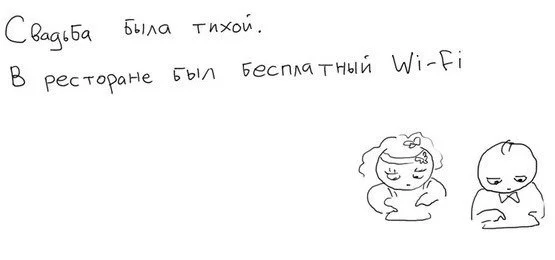 Свадьба была тихой.
В ресторане был бесплатный Wi-Fi